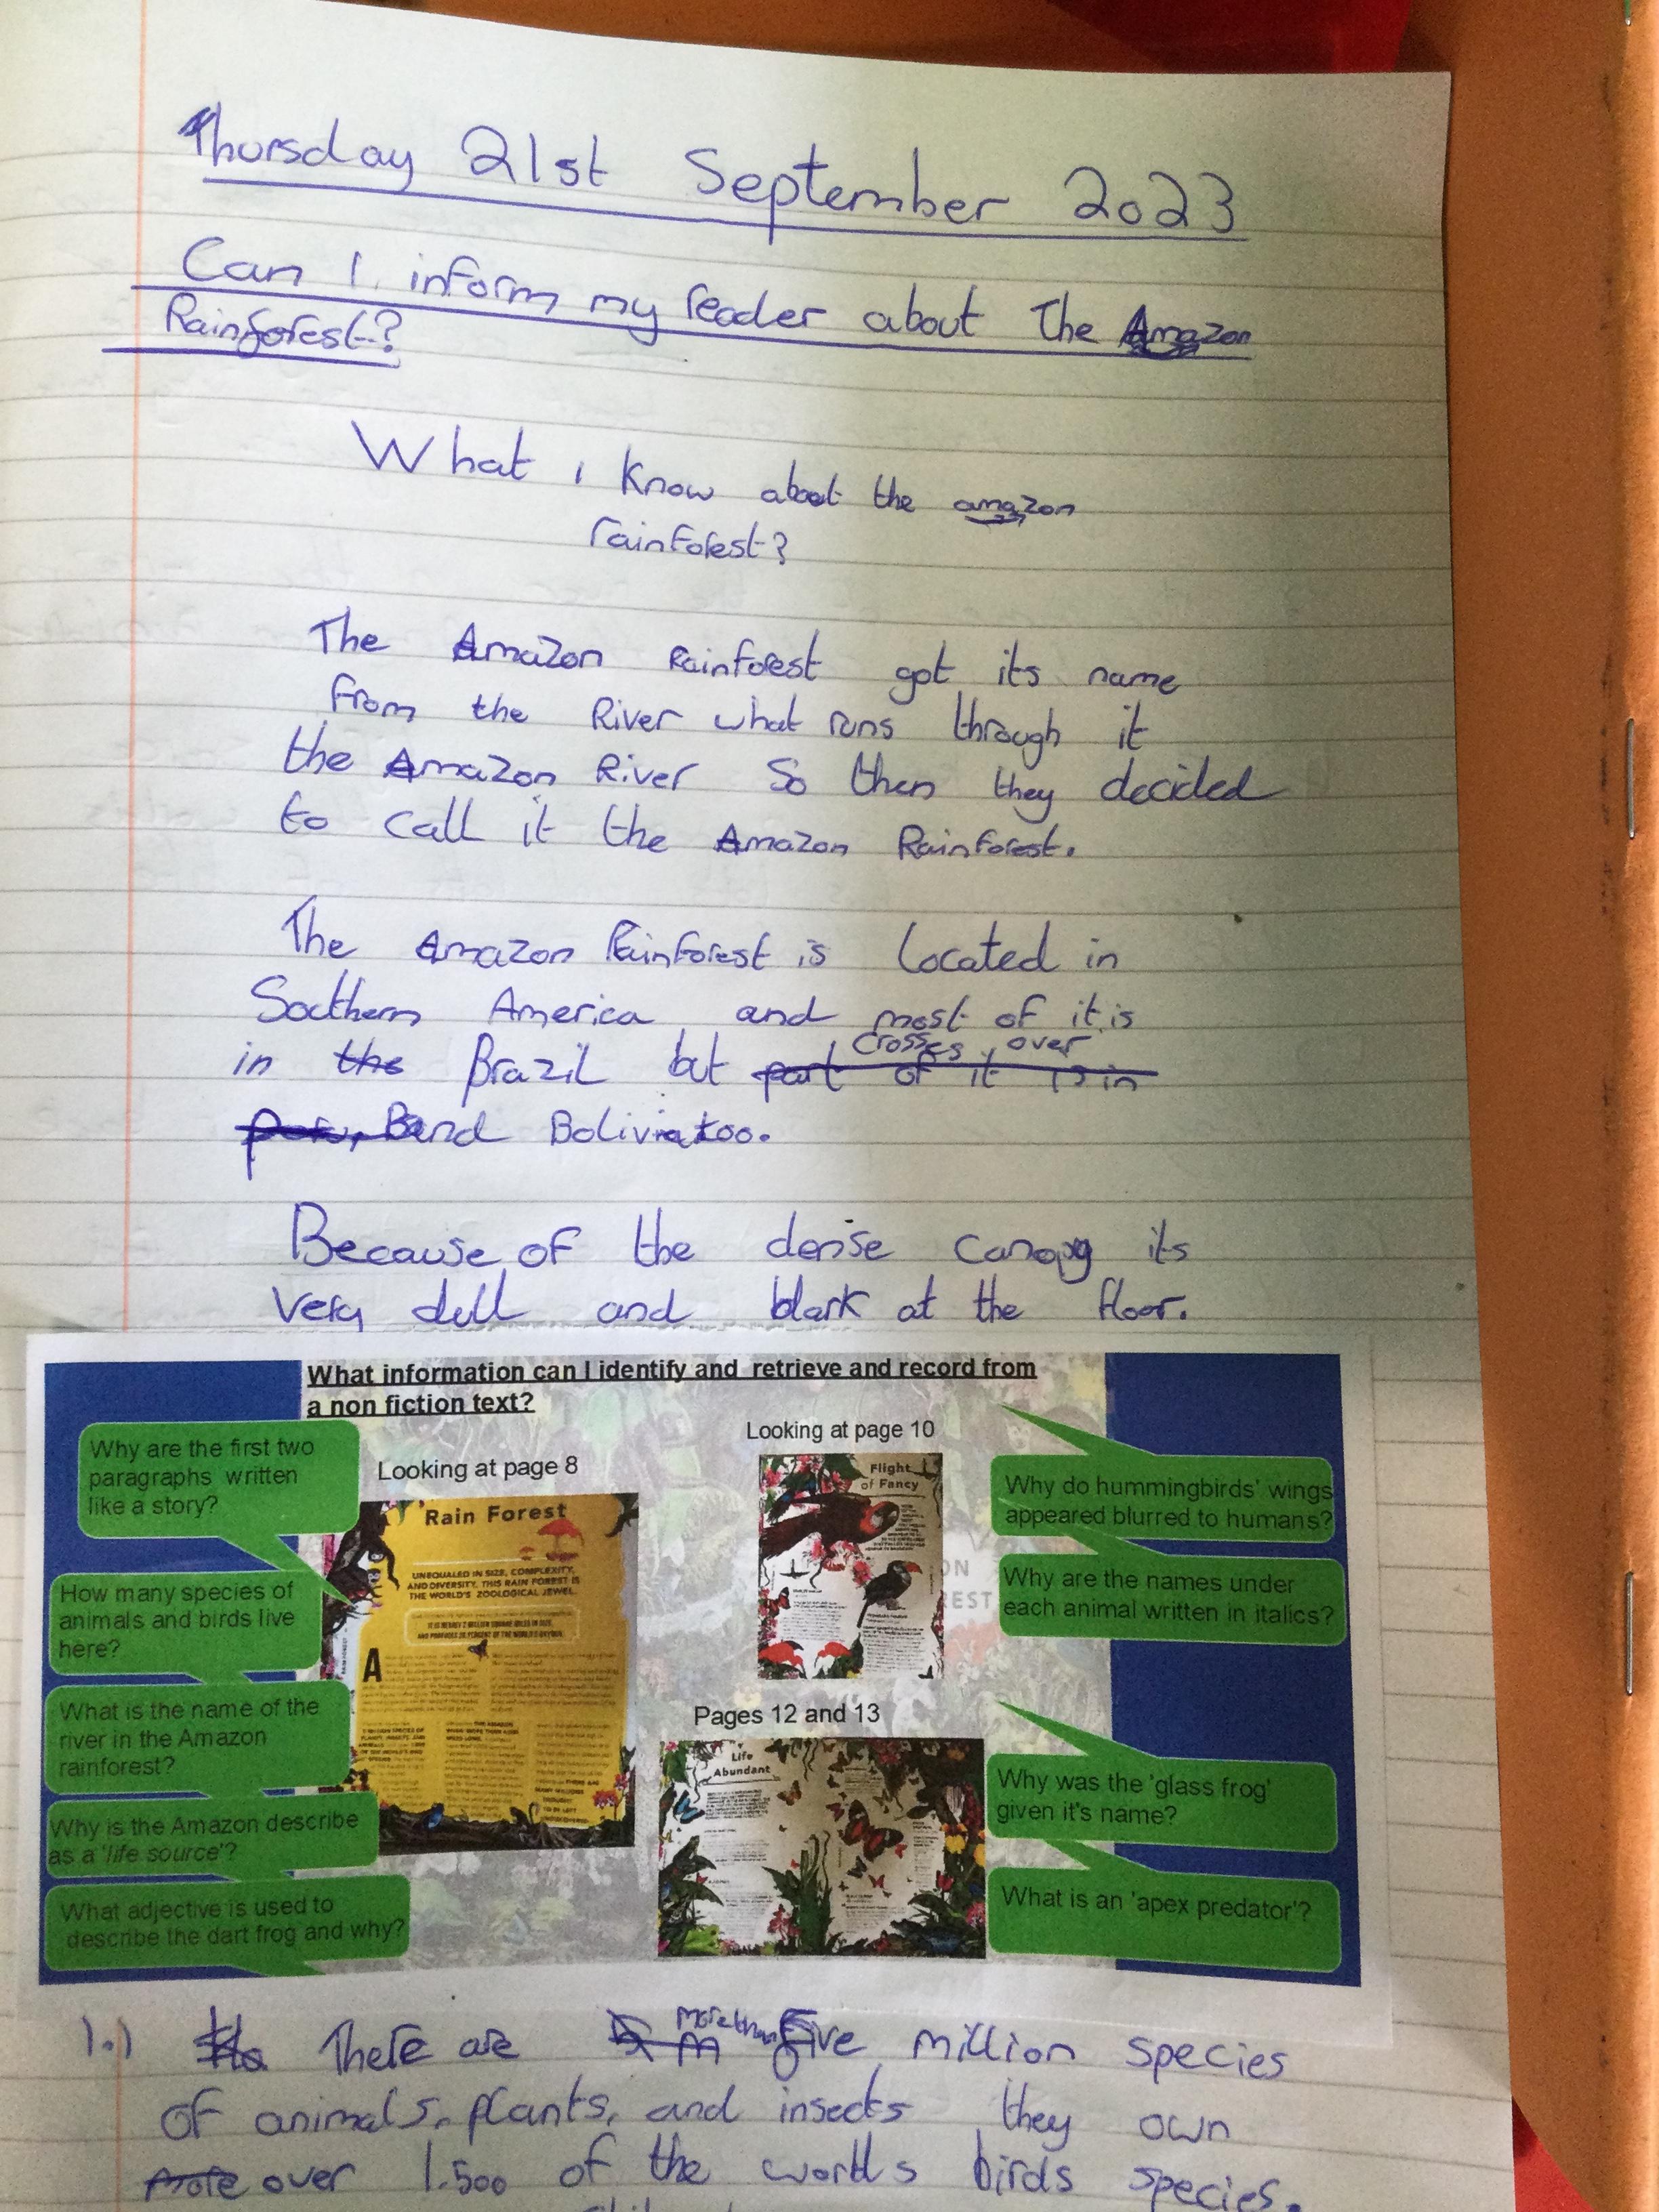 Thursday 21st September 2023
Can I inform my reader about The Amazon
Rainforest?
What i know about the amazon
rainforest?
The Amazon Rainforest got its name
from the River what runs through it
the Amazon River So then they decided
to call it the Amazon Rainforest.
The Amazon Rainforest is Located in
Southern America and most of it is
in the Brazil but part of it is in
crosses over
and Bolivia too.
Because of the dense canopy its
very dull and blank at the floor.
What information can I identify and retrieve and record from
a non fiction text?
Why are the first two
paragraphs written
like a story?
How many species of
animals and birds live
here?
What is the name of the
river in the Amazon
rainforest?
Why is the Amazon describe
as a 'life source'?
What adjective is used to
describe the dart frog and why?
Looking at page 8
Rain Forest
UNEQUALED IN SIZE, COMPLEXITY,
AND DIVERSITY, THIS RAIN FOREST IS
THE WORLD'S ZOOLOGICAL JEWEL.
IT IS NEARLY 2 MILLION SQUARE MILES IN SIZE
AND PRODUCES 20 PERCENT OF THE WORLD'S OXYGEN.
A
Looking at page 10
Flight
of Fancy
Pages 12 and 13
Life
Abundant
Why do hummingbirds' wings
appeared blurred to humans?
Why are the names under
each animal written in italics?
Why was the 'glass frog'
given it's name?
What is an 'apex predator'?
1.) There are more than Five million species
of animals, plants, and insects they own
more over 1.500 of the worlds birds species.